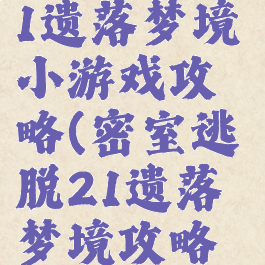 1遗落梦境
小游戏攻
略(密室逃
脱21遗落
梦境攻略